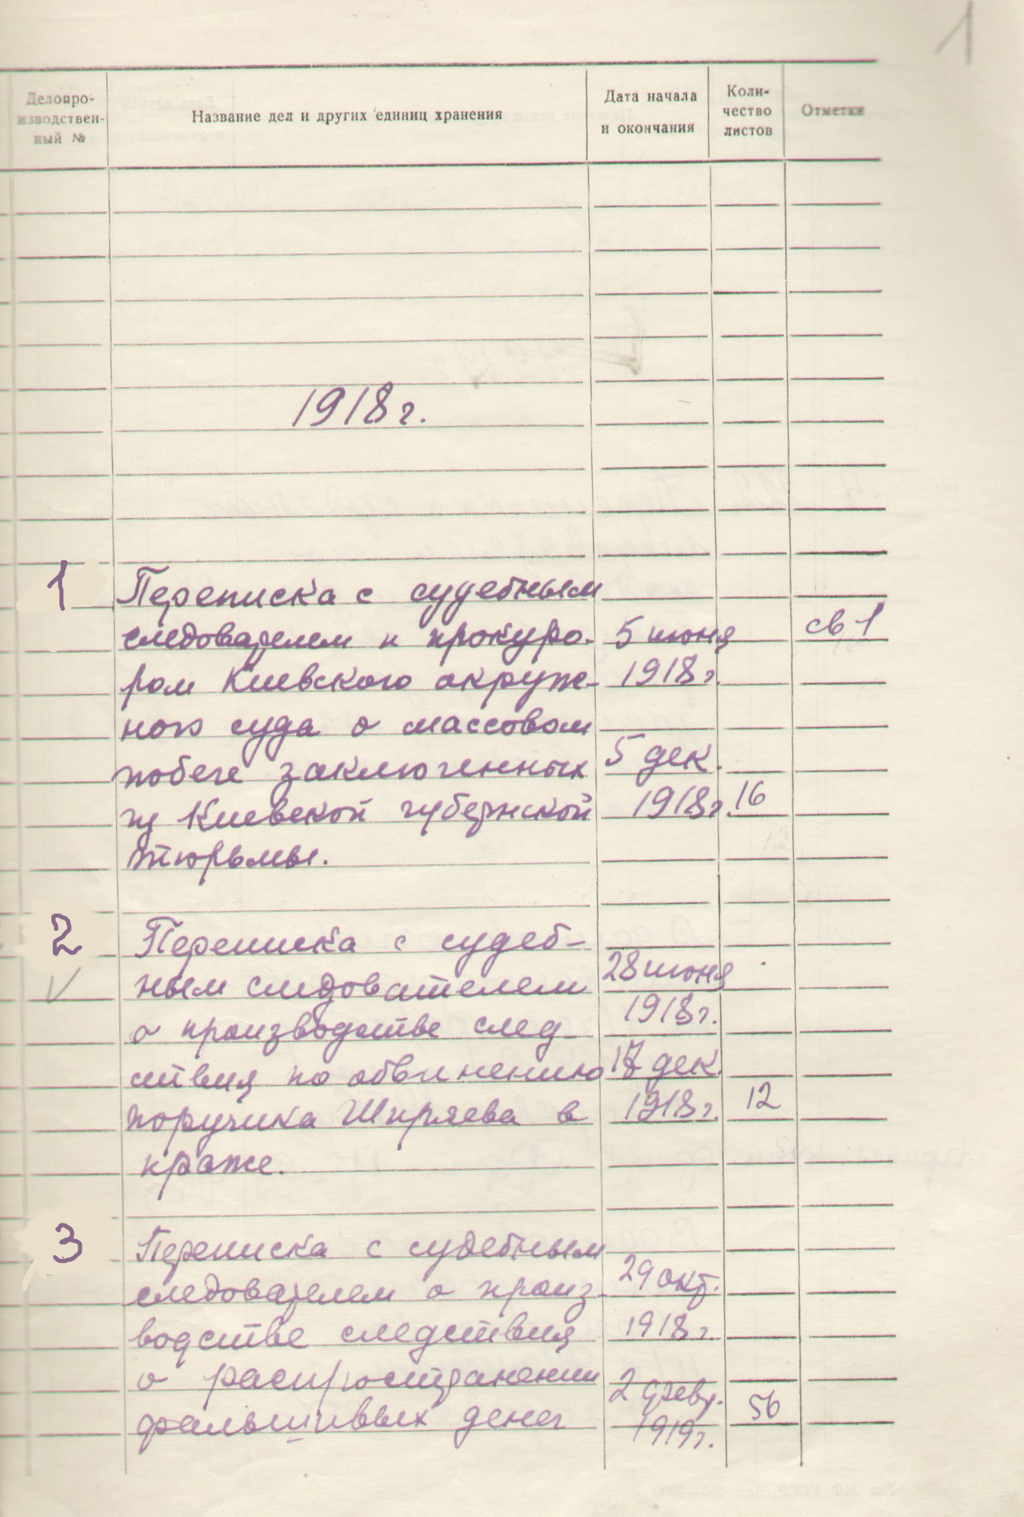 1
Делопро-
изводствен-
ный №
Название дел и других единиц хранения
Дата начала
и окончания
Коли-
чество
листов
Отметки
1918 г.
1
Переписка с судебным
следователем и прокуро-
ром Киевского окруж-
ного суда о массовом
побеге заключенных
из Киевской губернской
тюрьмы.
5 июня
1918 г.
5 дек.
1918 г.
16
св 1
2
Переписка с судеб-
ным следователем
о производстве след-
ствия по обвинению
поручика Ширяева в
краже.
28 июня
1918 г.
17 дек
1918 г.
12
3
Переписка с судебным
следователем о произ-
водстве следствия
о распространении
фальшивых денег
29 окт.
1918 г.
2 февр.
1919 г.
56